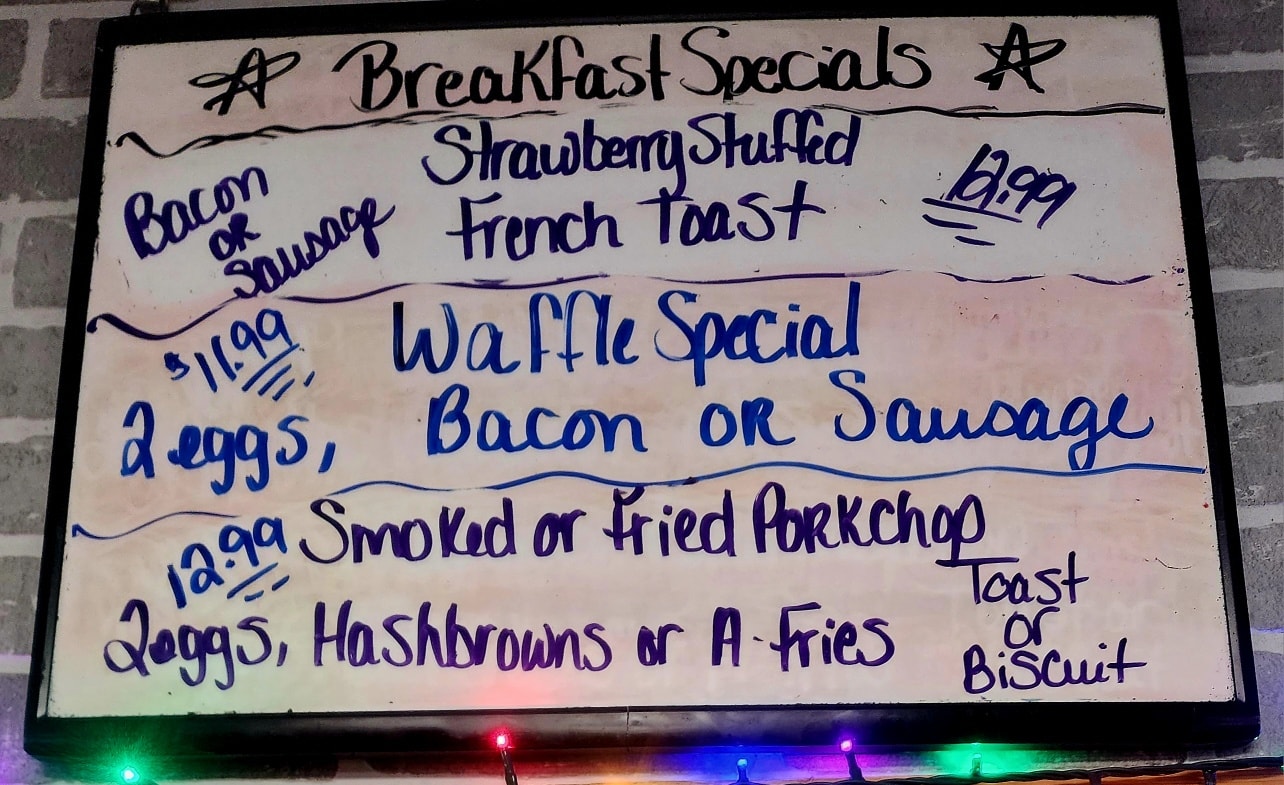 Breakfast Specials
Strawberry Stuffed
French Toast
Bacon
OR
Sausage
12.99
$11.99
Waffle Special
2 eggs, Bacon OR Sausage
12.99
Smoked or Fried PORKChop
2 eggs, Hashbrowns or A-Fries
Toast
or
Biscuit